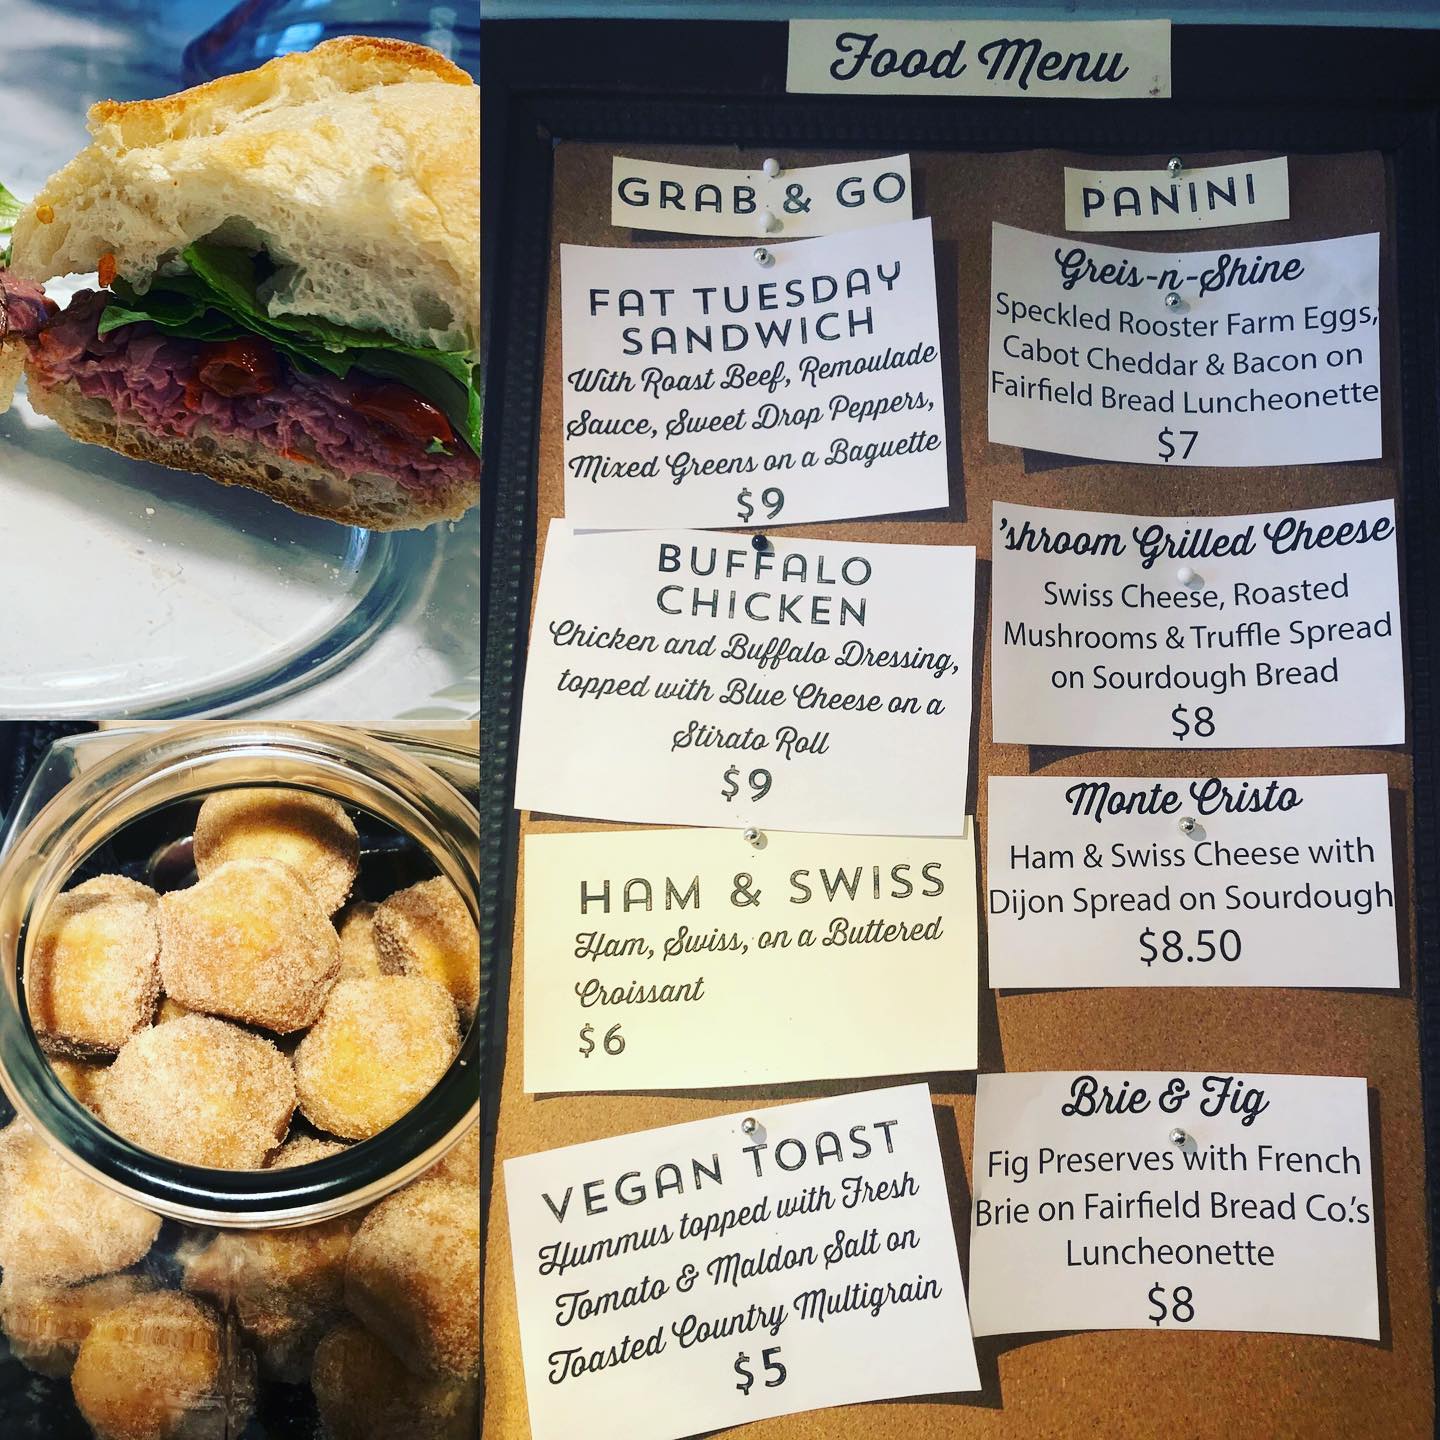 Food Menu
GRAB & GO
FAT TUESDAY
SANDWICH
With Roast Beef, Remoulade
Sauce, Sweet Drop Peppers,
Mixed Greens on a Baguette
$9
BUFFALO
CHICKEN
Chicken and Buffalo Dressing,
topped with Blue Cheese on a
Stirato Roll
$9
HAM & SWISS
Ham, Swiss, on a Buttered
Croissant
$6
VEGAN TOAST
Hummus topped with Fresh
Tomato & Maldon Salt on
Toasted Country Multigrain
$5
PANINI
Greis-n-Shine
Speckled Rooster Farm Eggs,
Cabot Cheddar & Bacon on
Fairfield Bread Luncheonette
$7
'shroom Grilled Cheese
Swiss Cheese, Roasted
Mushrooms & Truffle Spread
on Sourdough Bread
$8
Monte Cristo
Ham & Swiss Cheese with
Dijon Spread on Sourdough
$8.50
Brie & Fig
Fig Preserves with French
Brie on Fairfield Bread Co.'s
Luncheonette
$8